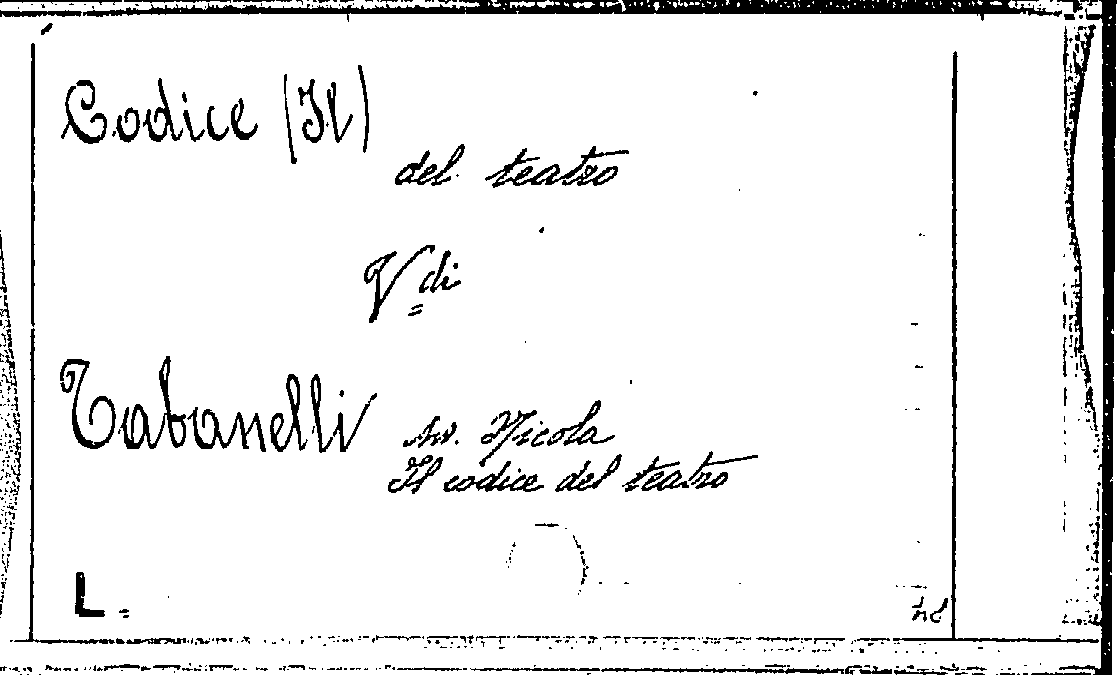 Codice (Il)
del teatro
V di
Tabanelli Av. Nicola
Il codice del teatro
L.